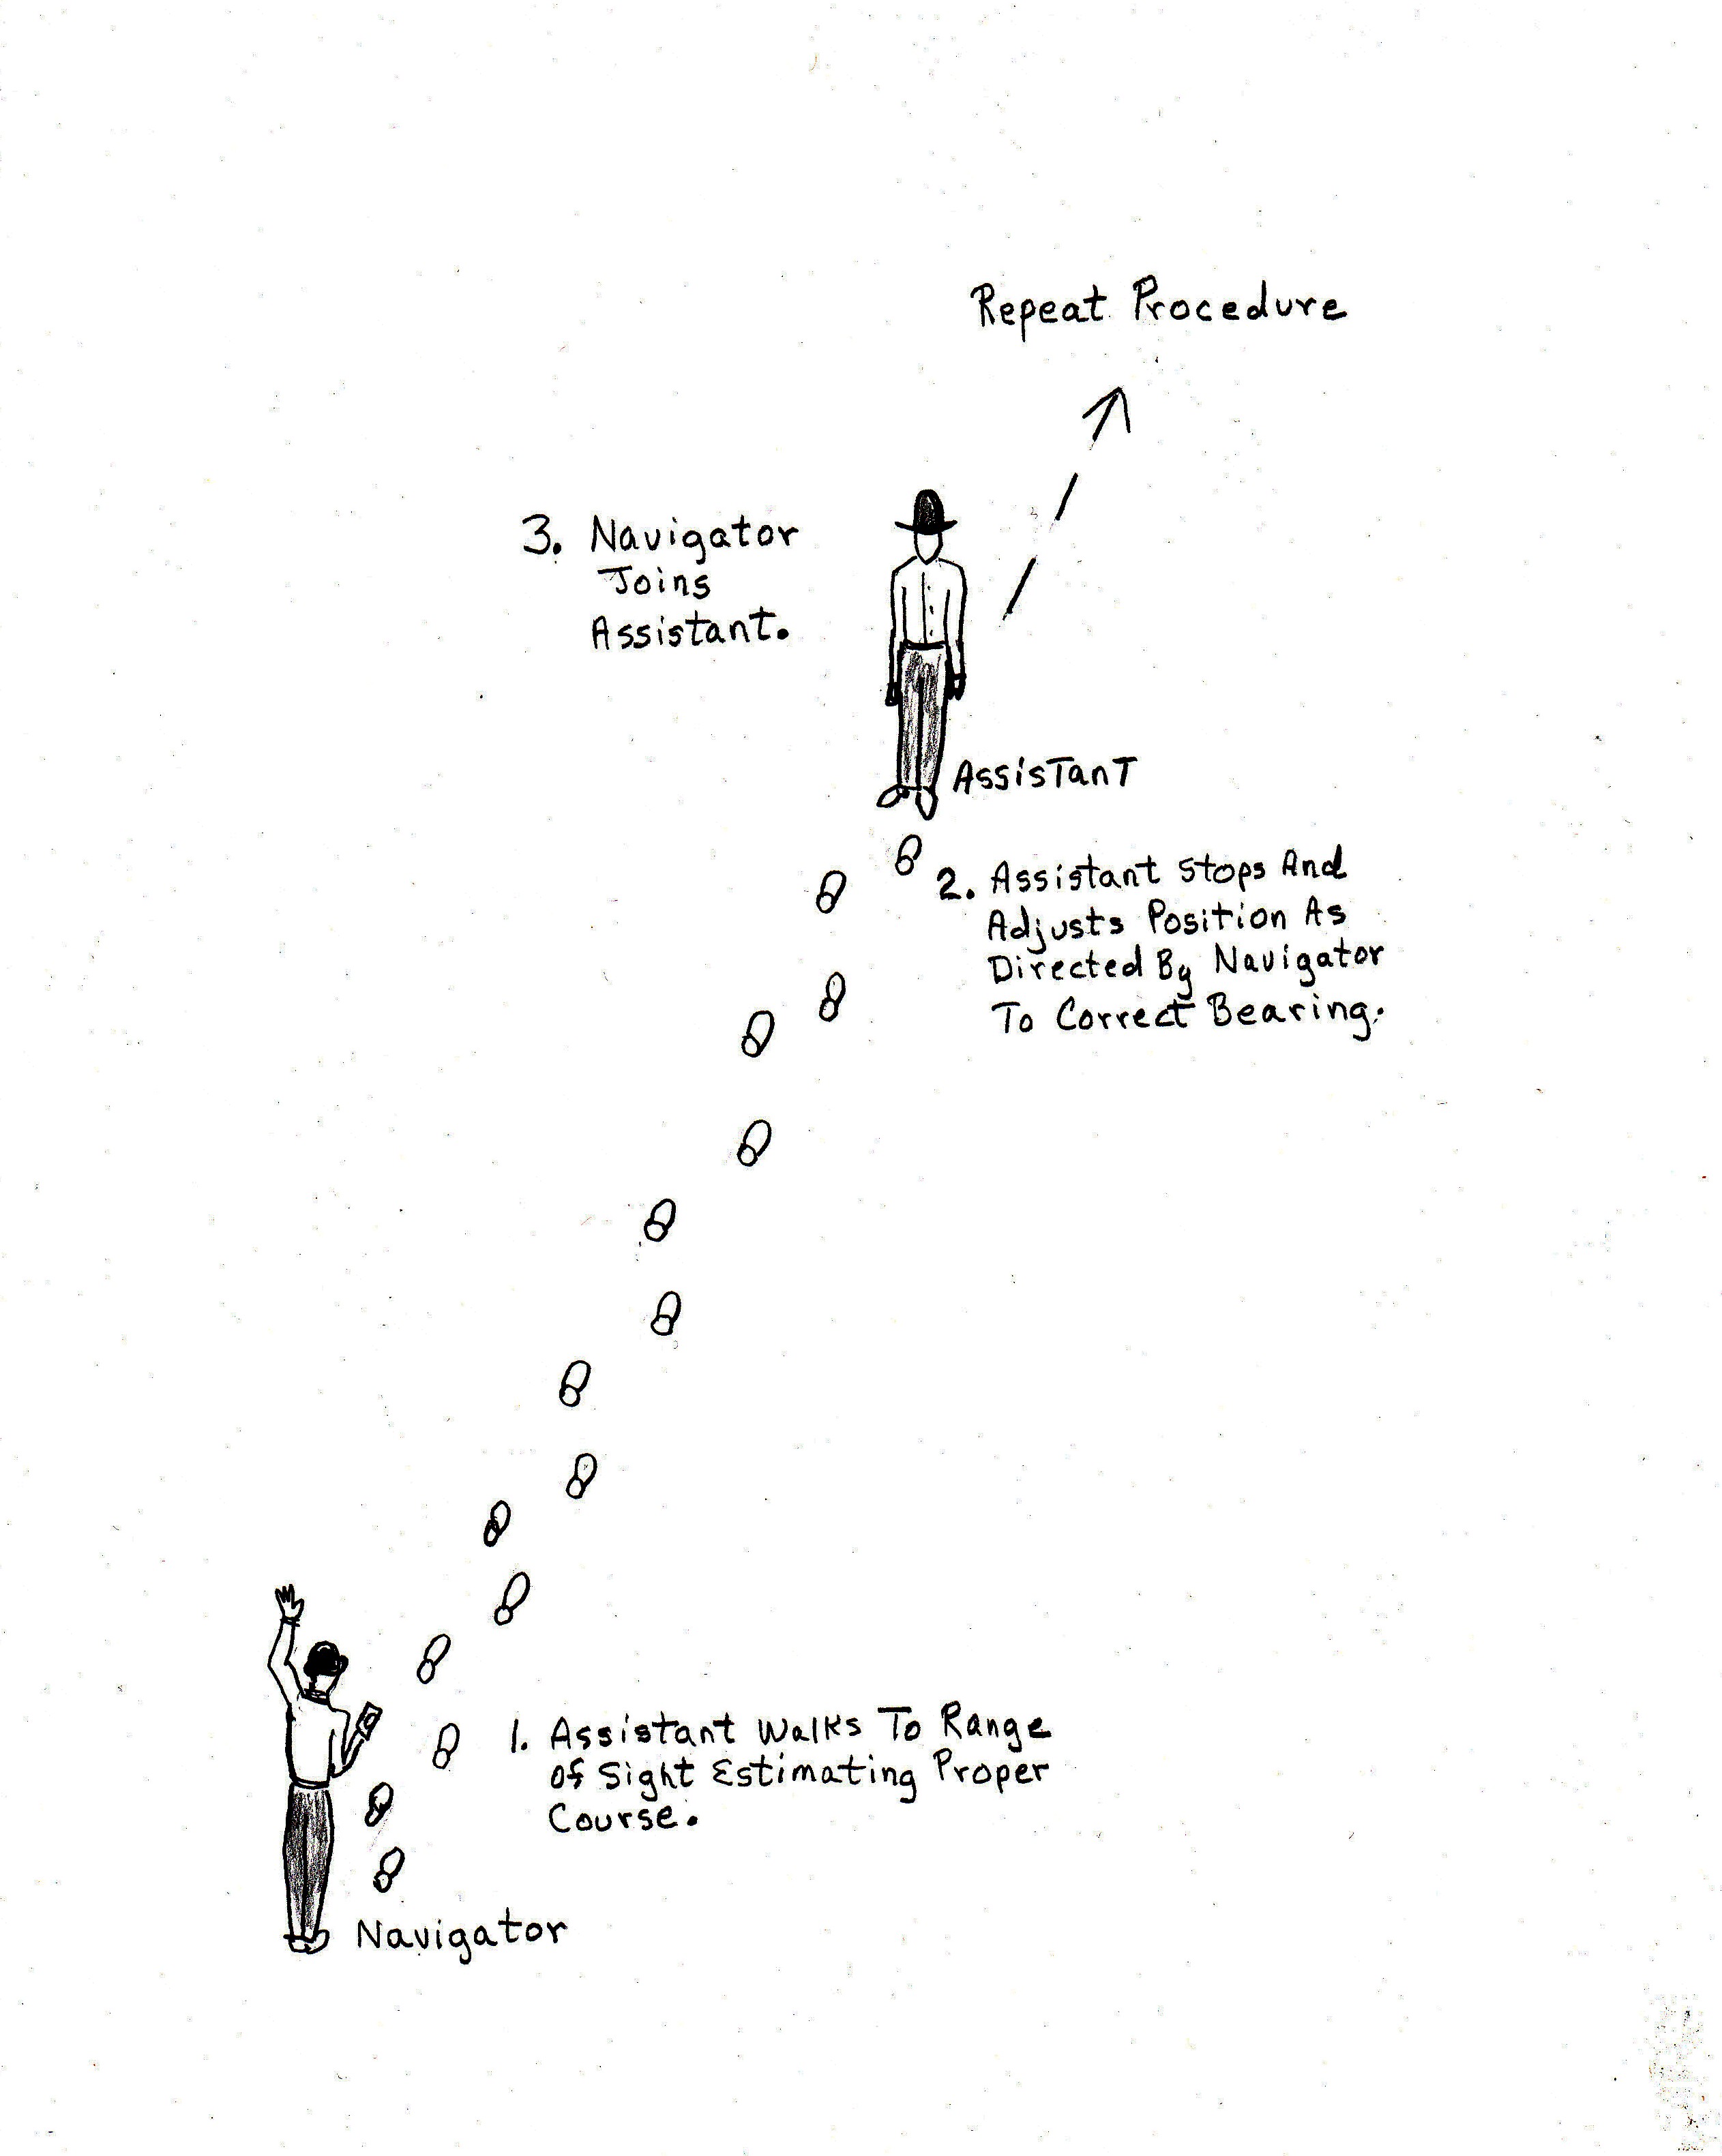 Repeat Procedure
3. Navigator
Joins
Assistant.
AssisTanT
2. Assistant Stops And
Adjusts Position As
Directed By Navigator
To Correct Bearing.
1. Assistant Walks To Range
of Sight Estimating Proper
Course.
Navigator